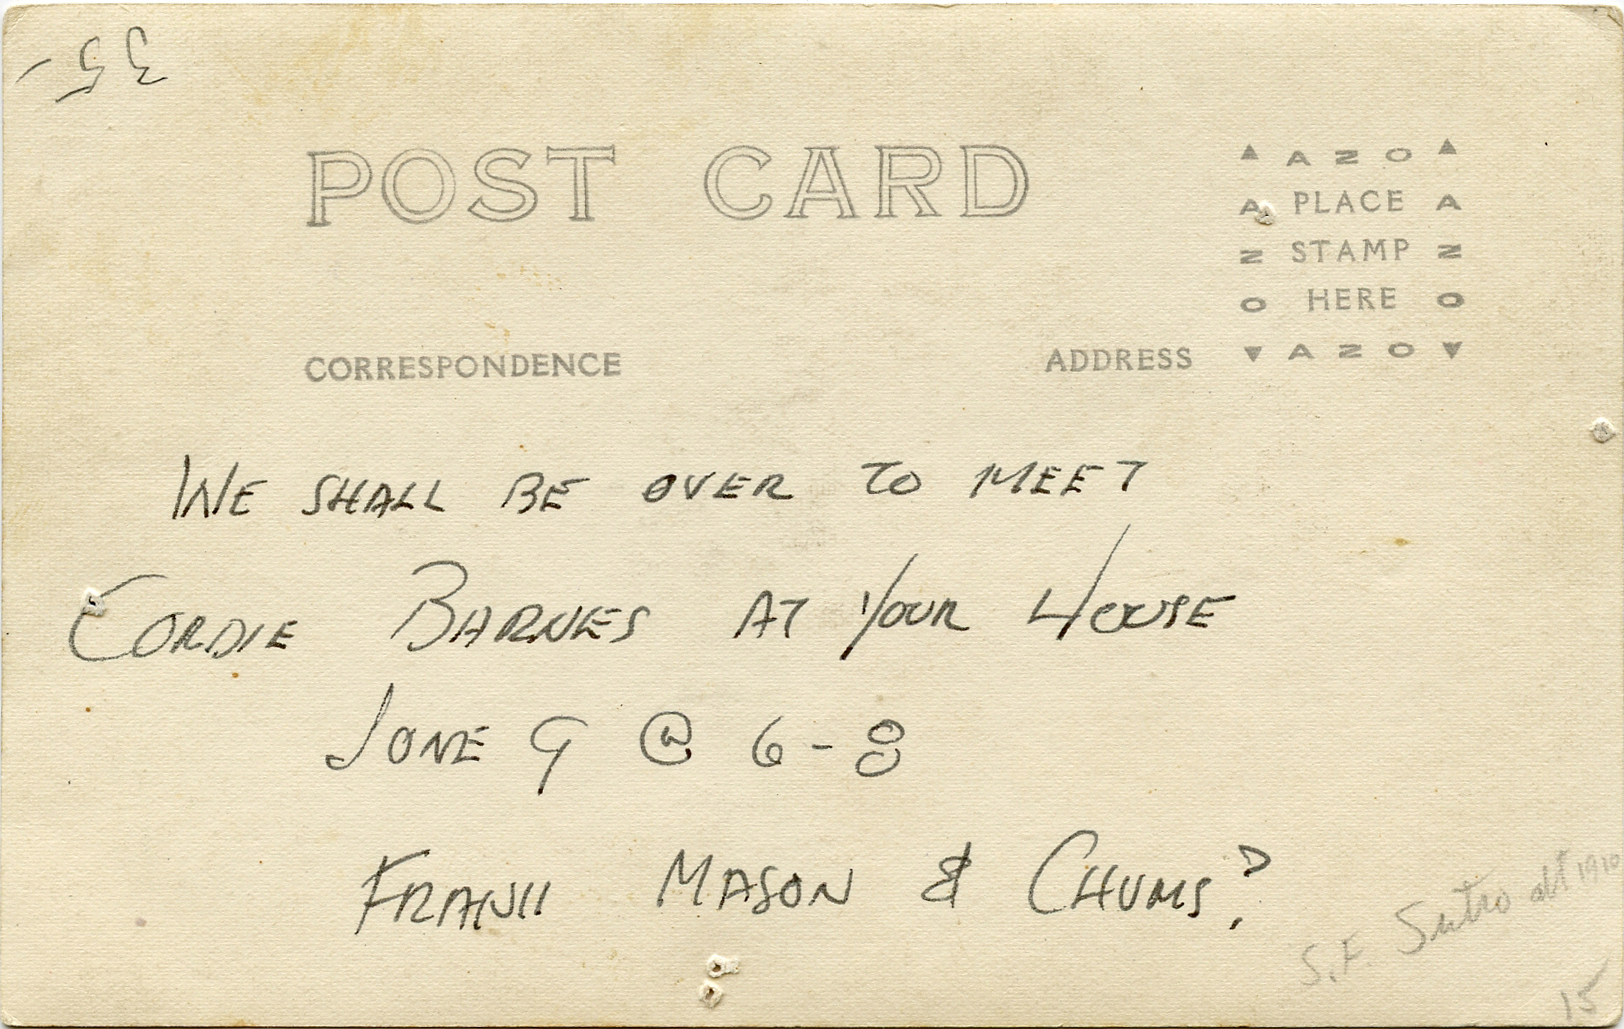 35-
POST CARD
▲ A Z O ▲
A PLACE A
N STAMP N
O HERE O
▼ A Z O ▼
CORRESPONDENCE
ADDRESS
WE SHALL BE OVER TO MEET
CORDIE BARNES AT YOUR HOUSE
JUNE 9 @ 6-8
FRANK MASON & CHUMS?
S.F. Sutro 1910
15